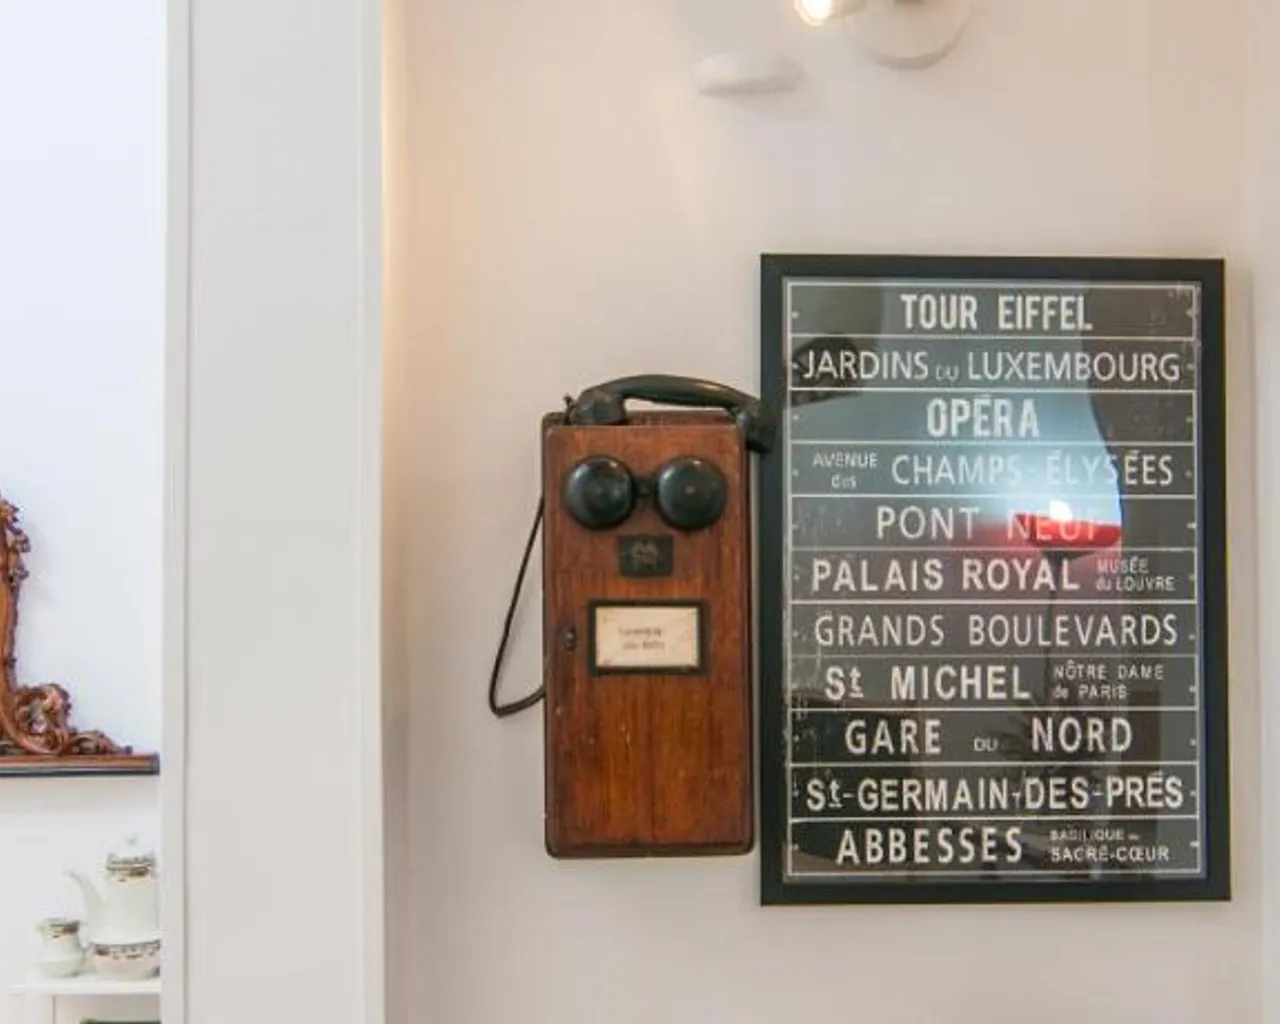 TOUR EIFFEL
JARDINS DU LUXEMBOURG
OPÉRA
AVENUE des CHAMPS-ÉLYSÉES
PONT NEUF
PALAIS ROYAL MUSÉE du LOUVRE
GRANDS BOULEVARDS
St MICHEL NÔTRE DAME de PARIS
GARE DU NORD
St-GERMAIN-DES-PRÉS
ABBESSES BASILIQUE SACRÉ-CŒUR